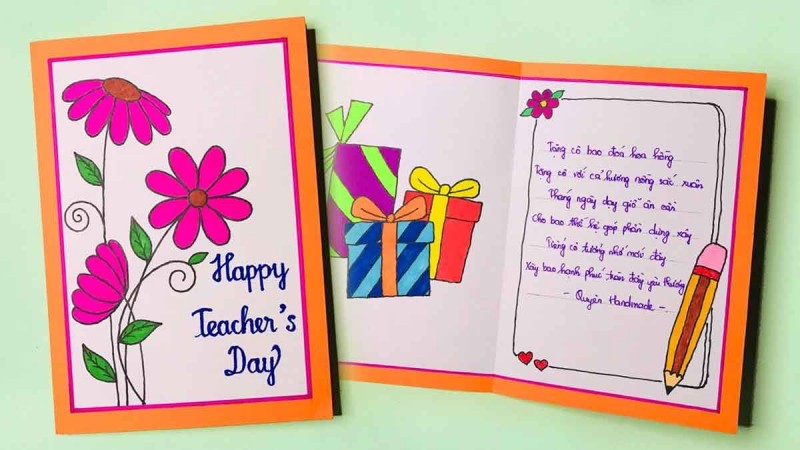 Happy
Teacher's
Day
Tặng cô bao đoá hoa hồng
Tặng cô với cả hương nồng sắc xuân
Tháng ngày dạy giỗ ân cần
Cho bao thế hệ góp phần dựng xây
Tặng cô tường nhớ mới đây
Xây bao hạnh phúc tràn đầy yêu thương
- Quyên Handmade -